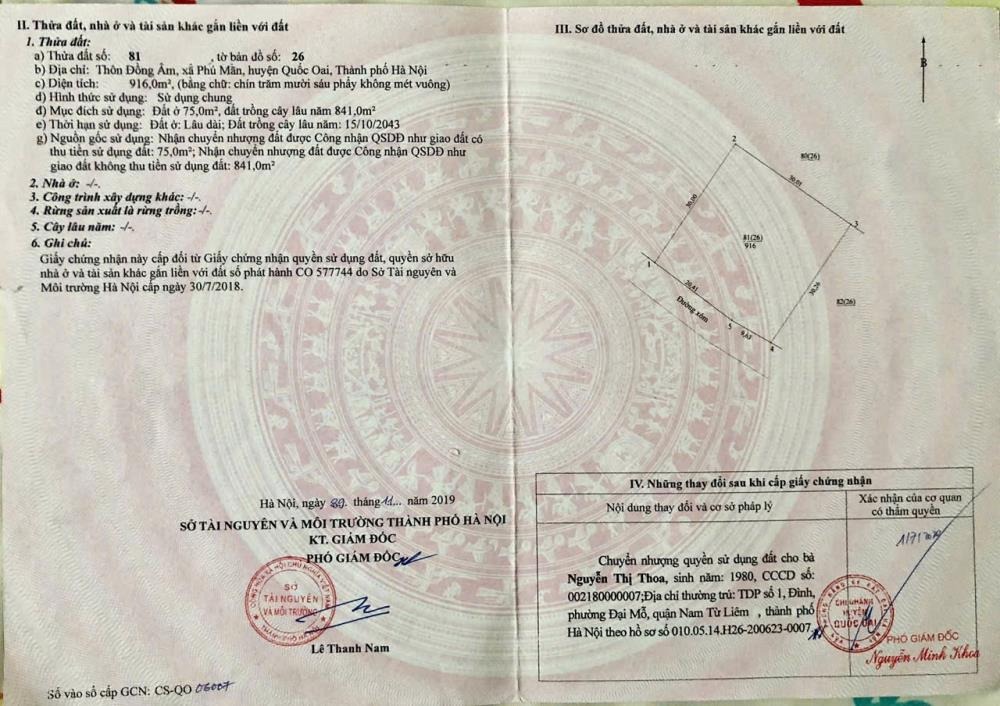 II. Thửa đất, nhà ở và tài sản khác gắn liền với đất
1. Thửa đất:
a) Thửa đất số: 81 , tờ bản đồ số: 26
b) Địa chỉ: Thôn Đồng Âm, xã Phú Mãn, huyện Quốc Oai, Thành phố Hà Nội
c) Diện tích: 916,0m², (bằng chữ: chín trăm mười sáu phẩy không mét vuông)
d) Hình thức sử dụng: Sử dụng chung
đ) Mục đích sử dụng: Đất ở 75,0m², đất trồng cây lâu năm 841,0m²
e) Thời hạn sử dụng: Đất ở: Lâu dài; Đất trồng cây lâu năm: 15/10/2043
g) Nguồn gốc sử dụng: Nhận chuyển nhượng đất được Công nhận QSDĐ như giao đất có
thu tiền sử dụng đất: 75,0m²; Nhận chuyển nhượng đất được Công nhận QSDĐ như
giao đất không thu tiền sử dụng đất: 841,0m²
2. Nhà ở: -/-.
3. Công trình xây dựng khác: -/-.
4. Rừng sản xuất là rừng trồng:-/-.
5. Cây lâu năm: -/-.
6. Ghi chú:
Giấy chứng nhận này cấp đổi từ Giấy chứng nhận quyền sử dụng đất, quyền sở hữu
nhà ở và tài sản khác gắn liền với đất số phát hành CO 577744 do Sở Tài nguyên và
Môi trường Hà Nội cấp ngày 30/7/2018.
Hà Nội, ngày 29. tháng 11... năm 2019
SỞ TÀI NGUYÊN VÀ MÔI TRƯỜNG THÀNH PHỐ HÀ NỘI
KT. GIÁM ĐỐC
PHÓ GIÁM ĐỐC
SỞ
TÀI NGUYÊN
VÀ MÔI TRƯỜNG
Lê Thanh Nam
Số vào sổ cấp GCN: CS-QO 06007
III. Sơ đồ thửa đất, nhà ở và tài sản khác gắn liền với đất
B
2
80(26)
30,01
30,00
3
81(26)
916
1
20,41
30,26
82(26)
Đường xóm
5
9,63
4
IV. Những thay đổi sau khi cấp giấy chứng nhận
Nội dung thay đổi và cơ sở pháp lý
Xác nhận của cơ quan
có thẩm quyền
Chuyển nhượng quyền sử dụng đất cho bà
Nguyễn Thị Thoa, sinh năm: 1980, CCCD số:
002180000007;Địa chỉ thường trú: TDP số 1, Đình,
phường Đại Mỗ, quận Nam Từ Liêm , thành phố
Hà Nội theo hồ sơ số 010.05.14.H26-200623-0007.
CHI NHÁNH
HUYỆN
QUỐC OAI
PHÓ GIÁM ĐỐC
Nguyễn Minh Khoa